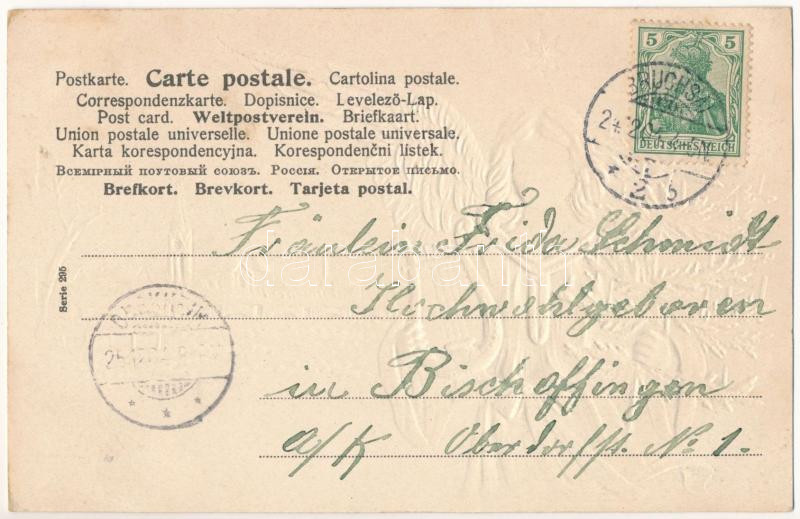 Postkarte. Carte postale. Cartolina postale.
Correspondenzkarte. Dopisnice. Levelező-Lap.
Post card. Weltpostverein. Briefkaart.
Union postale universelle. Unione postale universale.
Karta korespondencyjna. Korespondenčni lístek.
Всемірный почтовый союзъ. Россія. Открытое письмо.
Brefkort. Brevkort. Tarjeta postal.
5 5
DEUTSCHES REICH
BRUCHSAL
* 2 b
Fräulein Frida Schmidt
Hochwohlgeboren
in Bischoffingen
a/K Oberdorfst. No 1.
Serie 295
darabanth